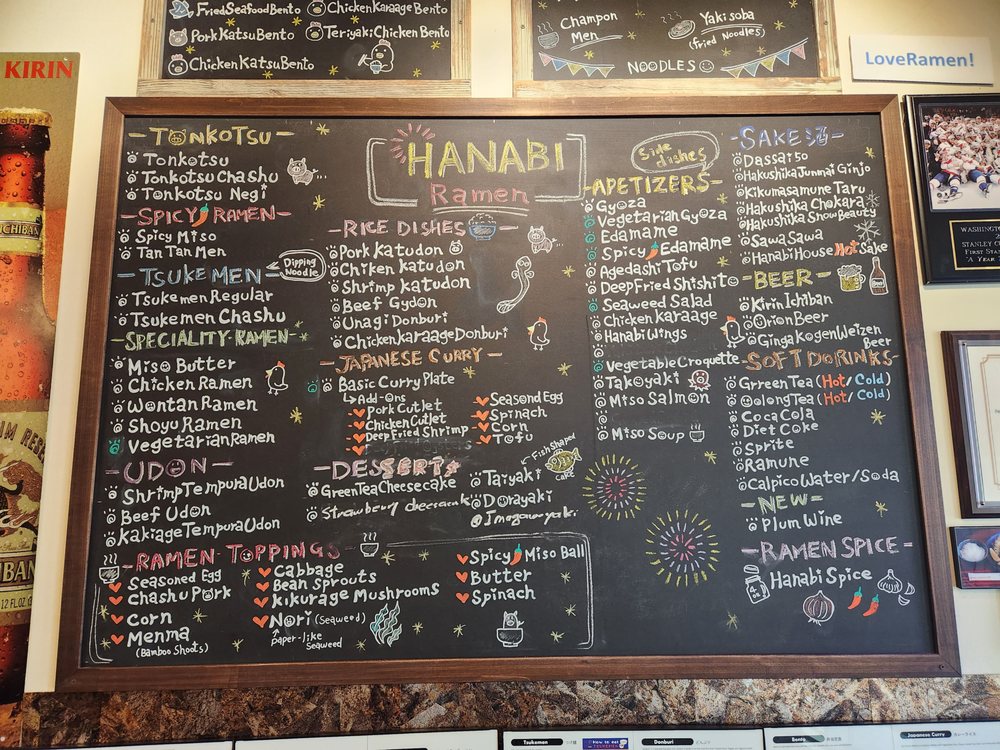 KIRIN
ICHIBAN
12 FL. OZ
Fried Seafood Bento
Chicken Karaage Bento
Pork Katsu Bento
Teriyaki Chicken Bento
Chicken Katsu Bento
Champon Men
Yakisoba
(fried Noodles)
NOODLES
LoveRamen!
HANABI
Ramen
-TONKOTSU-
Tonkotsu
Tonkotsu Chashu
Tonkotsu Negi
-SPICY RAMEN-
Spicy Miso
Tan Tan Men
-TSUKEMEN
Dipping Noodle
Tsukemen Regular
Tsukemen Chashu
-SPECIALITY RAMEN-
Miso Butter
Chicken Ramen
Wontan Ramen
Shoyu Ramen
Vegetarian Ramen
-UDON-
Shrimp Tempura Udon
Beef Udon
Kakiage Tempura Udon
-RICE DISHES-
Pork Katudon
Chiken katudon
Shrimp katudon
Beef Gydon
Unagi Donburi
Chicken karaage Donburi
-JAPANESE CURRY-
Basic Curry Plate
Add-Ons
Pork Cutlet
Chicken Cutlet
Deep Fried Shrimp
Seasoned Egg
Spinach
Corn
Tofu
-DESSERTS
Green Tea Cheesecake
Strawberry cheesecake
Fish Shaped cake
Taiyaki
Dorayaki
Imagawayaki
-RAMEN TOPPINGS-
Seasoned Egg
Chashu Pork
Corn
Menma
(Bamboo Shoots)
Cabbage
Bean Sprouts
kikurage Mushrooms
Nori (Seaweed)
paper-like Seaweed
Spicy Miso Ball
Butter
Spinach
Side dishes
-APETIZERS-
Gyoza
Vegetarian Gyoza
Edamame
Spicy Edamame
Agedashi Tofu
Deep Fried Shishito
Seaweed Salad
Chicken karaage
Hanabi Wings
Vegetable Croquette
Takoyaki
Miso Salmon
Miso Soup
-SAKE 酒
Dassai 50
Hakushika Junmai Ginjo
Kikumasamune Taru
Hakushika Chokara
Hakushika Snow Beauty
Sawa Sawa
Hanabi House Hot Sake
-BEER-
Kirin Ichiban
Orion Beer
Ginga Kogen Weizen Beer
-SOFT DORINKS-
Grreen Tea (Hot/Cold)
Oolong Tea (Hot/Cold)
Coca Cola
Diet Coke
Sprite
Ramune
Calpico Water/Soda
-NEW-
Plum Wine
-RAMEN SPICE-
4 oz
Hanabi Spice
Tsukemen
How to eat
TSUKEMEN
Donburi
Bento
Japanese Curry
カレーライス